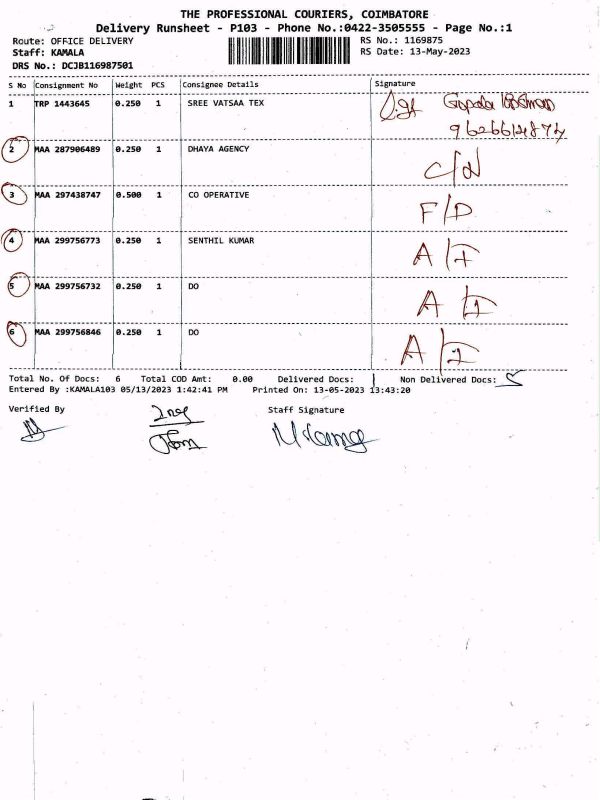 THE PROFESSIONAL COURIERS, COIMBATORE
Delivery Runsheet - P103 - Phone No.:0422-3505555 - Page No.:1
Route: OFFICE DELIVERY RS No.: 1169875
Staff: KAMALA RS Date: 13-May-2023
DRS No.: DCJB116987501
S No Consignment No Weight PCS Consignee Details Signature
1 TRP 1443645 0.250 1 SREE VATSAA TEX
2 MAA 287906489 0.250 1 DHAYA AGENCY C/N
3 MAA 297438747 0.500 1 CO OPERATIVE F/D
4 MAA 299756773 0.250 1 SENTHIL KUMAR A/I
5 MAA 299756732 0.250 1 DO A/I
6 MAA 299756846 0.250 1 DO A/I
Total No. Of Docs: 6 Total COD Amt: 0.00 Delivered Docs: 1 Non Delivered Docs: 5
Entered By :KAMALA103 05/13/2023 1:42:41 PM Printed On: 13-05-2023 13:43:20
Verified By Staff Signature